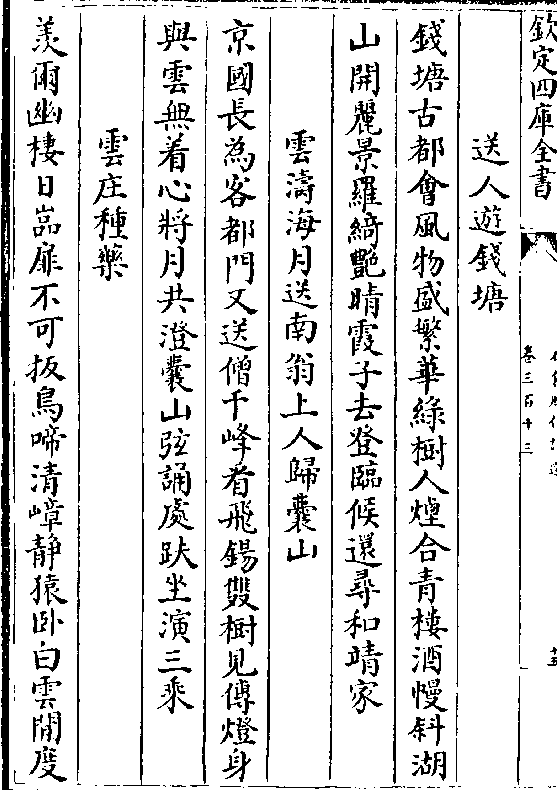 欽定四庫全書
卷三百十三
送人遊錢塘
錢塘古都會風物盛繁華綠樹人煙合青樓酒幔斜湖
山開麗景羅綺艷晴霞子去登臨候還尋和靖家
雲濤海月送南翁上人歸囊山
京國長為客都門又送僧千峰看飛錫雙樹見傳燈身
與雲無着心將月共澄囊山弦誦處趺坐演三乘
雲庄種藥
羨爾幽棲日嵓扉不可扳鳥啼清嶂靜猿卧白雲閒度